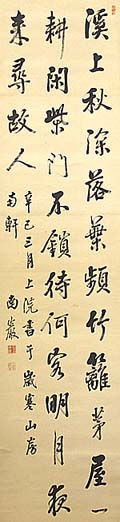 溪上秋深落葉頻竹籬茅屋一
耕閑柴門不鎖待何客明月夜
来尋故人
辛巳三月上浣書于歲寒山房
南軒